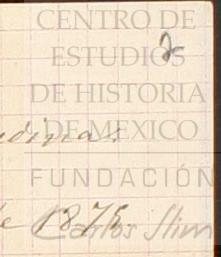 CENTRO DE
ESTUDIOS
2
DE HISTORIA
DE MEXICO
FUNDACIÓN
1875.
Carlos Slim